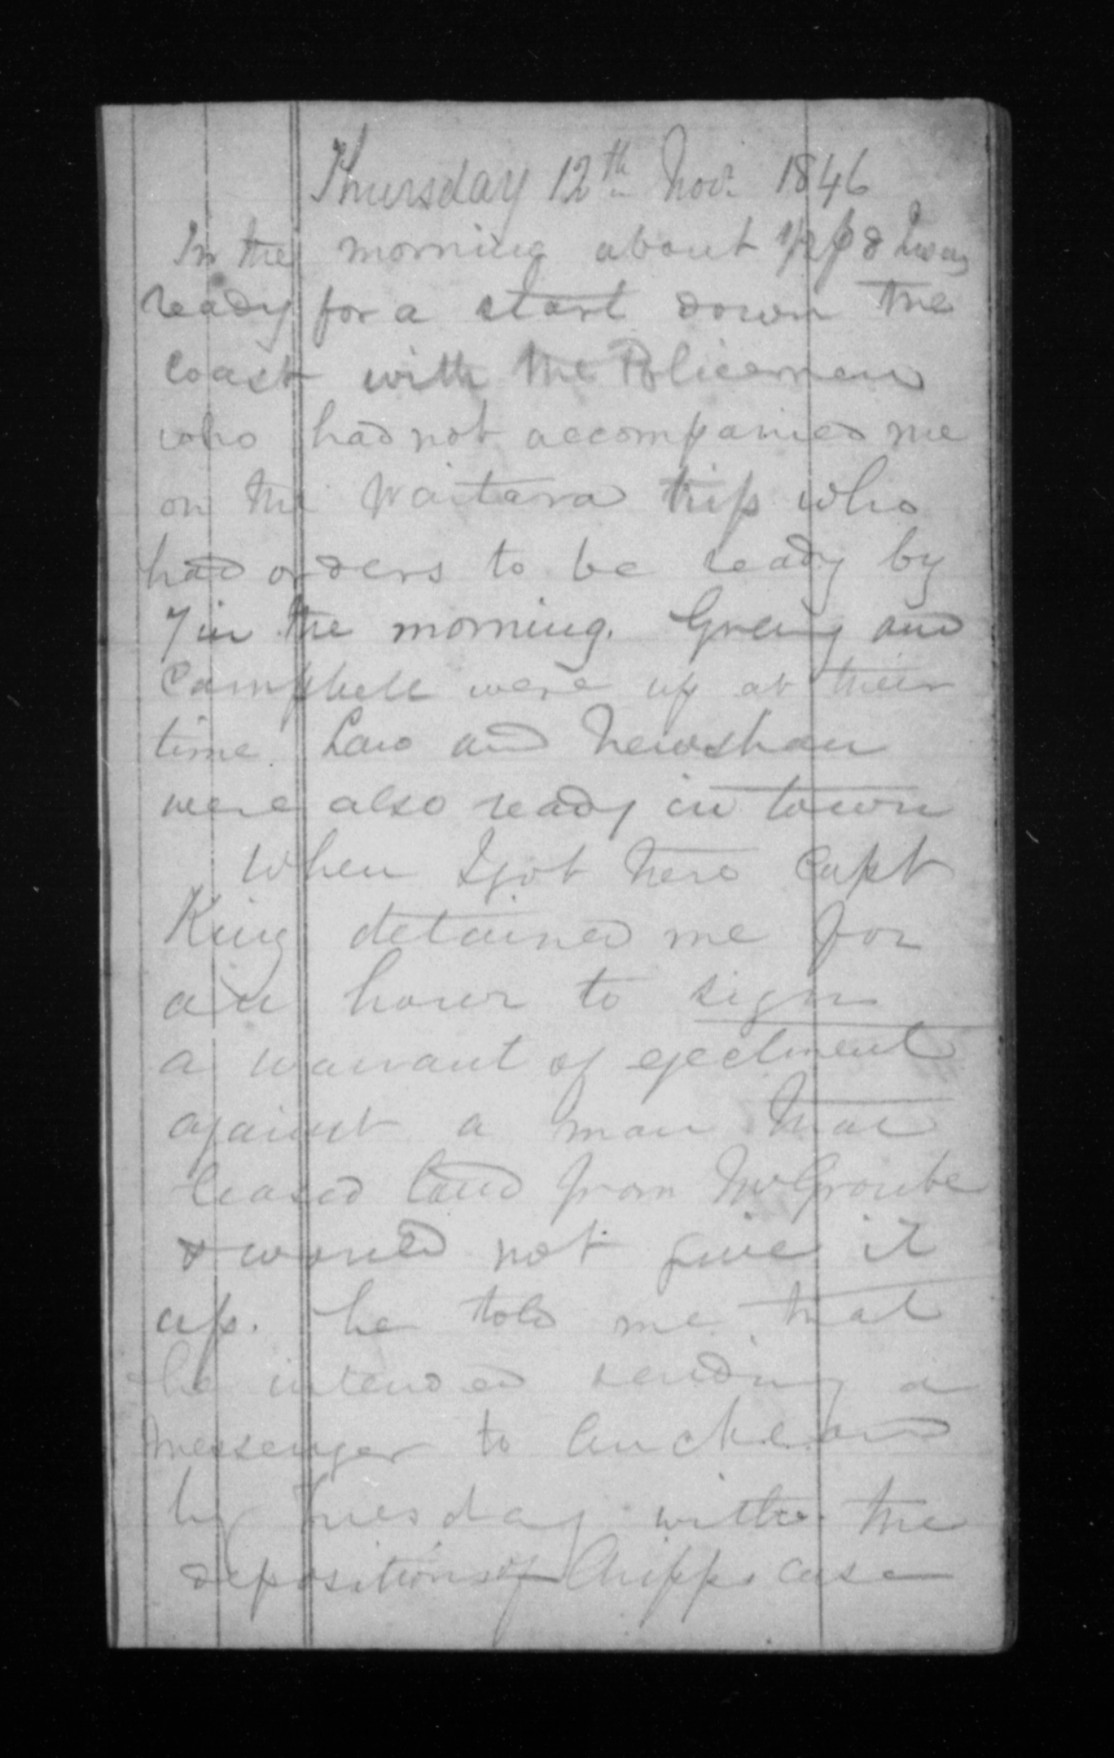 Thursday 12th Novr. 1846
In the morning about 1/2 p 8 I was
ready for a start down the
Coast with the Policemen
who had not accompanied me
on the Waitara trip who
had orders to be ready by
7 in the morning. Greing and
Campbell were up at their
time. Law and Newshan
were also ready in town
When I got here Capt
King detained me for
an hour to sign
a warrant of ejectment
against a man that
leased land from
& would not give it
up. he told me that
he intended sending a
messenger to Auckland
by Tuesday with the
depositions of Chipps case